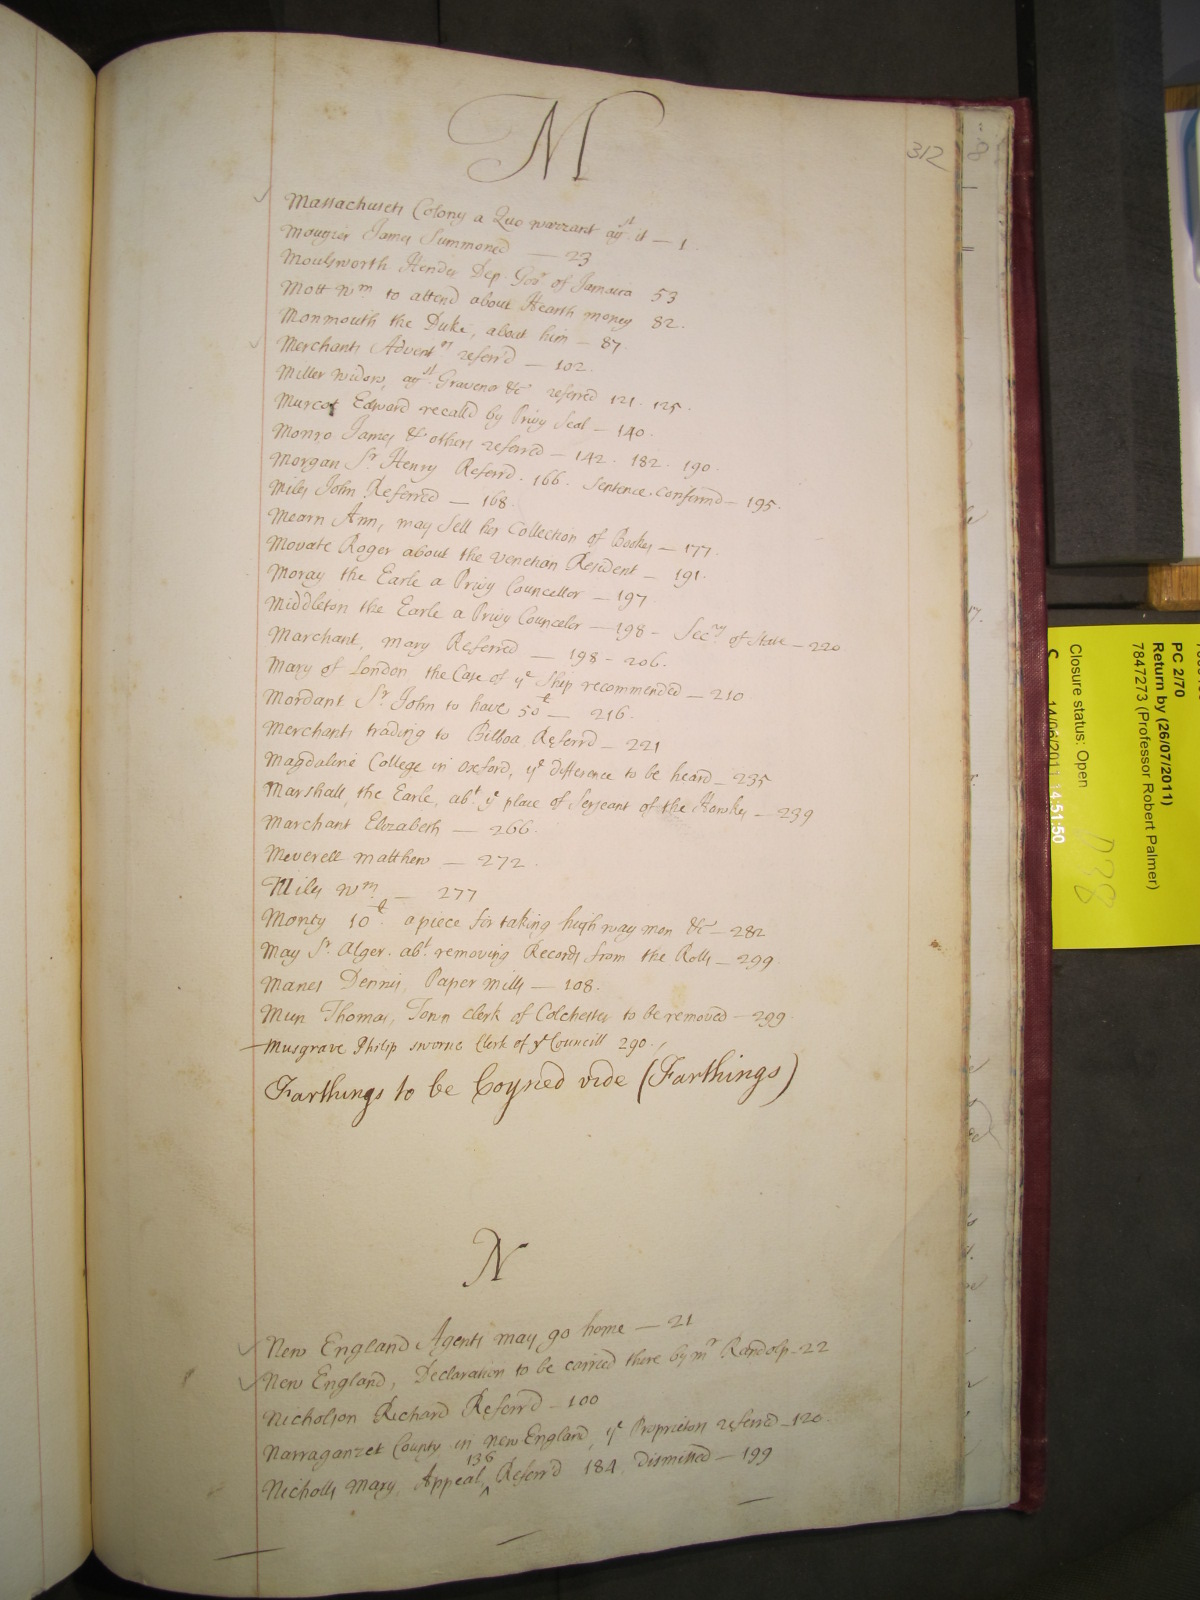 M
312
Massachusets Colony a Quo warrant agst it — 1
Mougier James Summoned — 23
Moulsworth Hender Dep. Govr of Jamaica 53
Mott Wm to attend about Hearth money 82.
Monmouth the Duke, about him — 87.
Merchants Adventrs referrd — 102.
Miller widow, agst Gravenor &c referred 121. 125.
Murcot Edward recalld by Privy Seal — 140.
Monro James & others referred — 142. 182. 190.
Morgan Sr Henry Referrd. 166. Sentence Confirmd — 195.
Miles John Referred — 168.
Mearn Ann, may Sell her Collection of Bookes — 177.
Movate Roger about the Venetian Resident — 191.
Moray the Earle a Privy Councellor — 197
Middleton the Earle a Privy Counceler — 198 - Secry of State — 220
Marchant, Mary Referred — 198 - 206.
Mary of London the Case of ye Ship recommended — 210
Mordant Sr John to have 50£ — 216.
Merchants trading to Bilboa Referrd — 221
Magdaline College in Oxford, ye difference to be heard — 235
Marshall the Earle, abt ye place of Serjeant of the Hawkes — 239
Marchant Elizabeth — 266.
Meverell Matthew — 272.
Miles Wm — 277
Mony 10£ a piece for taking high way men &c — 282
May Sr Alger. abt removing Records from the Rolls — 299.
Manes Dennis, Paper mills — 108.
Mun Thomas, Town Clerk of Colchester to be removed — 299.
Musgrave Philip sworne Clerk of ye Councill 290.
Farthings to be Coyned vide (Farthings)
N
New England Agents may go home — 21
New England, Declaration to be carried there by Mr Randolp — 22
Nicholson Richard Referrd — 100
Narraganset County in New England, ye Proprietors referred — 120.
Nicholls Mary, Appeal 136 ^ Referrd 184 dismissed — 199
PC 2/70
Return by (26/07/2011)
7847273 (Professor Robert Palmer)
Closure status: Open
14/06/2011 14:51:50
D38